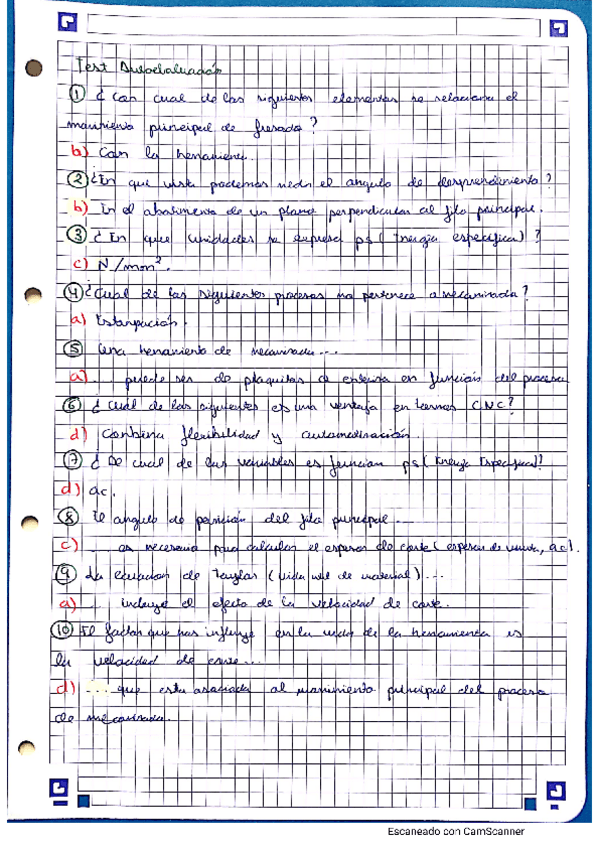 Test Autoevaluación
① ¿Con cual de los siguientes elementos se relaciona el
movimiento principal de fresado?
b) Con la herramienta.
② ¿En que vista podemos medir el angulo de desprendimiento?
b) En el abatimiento de un plano perpendicular al filo principal.
③ ¿En que unidades se expresa ps (Energia especifica)?
c) N/mm².
④ ¿Cual de los siguientes procesos no pertenece a mecanizado?
a) Estampación.
⑤ Una herramienta de mecanizado...
a)... puede ser de plaquitas o enteriza en función del proceso
⑥ ¿Cual de las siguientes es una ventaja en tornos CNC?
d) Combina flexibilidad y automatización.
⑦ ¿De cual de las variables es funcion ps (Energia Especifica)?
d) ac.
⑧ El angulo de posición del filo principal...
c) ... es necesario para calcular el espesor de corte (espesor de viruta, ac).
⑨ La ecuacion de Taylor (vida util de material)...
a) ... incluye el efecto de la velocidad de corte.
⑩ El factor que mas influye en la vida de la herramienta es
la velocidad de corte...
d) ... que esta asociada al movimiento principal del proceso
de mecanizado.
Escaneado con CamScanner